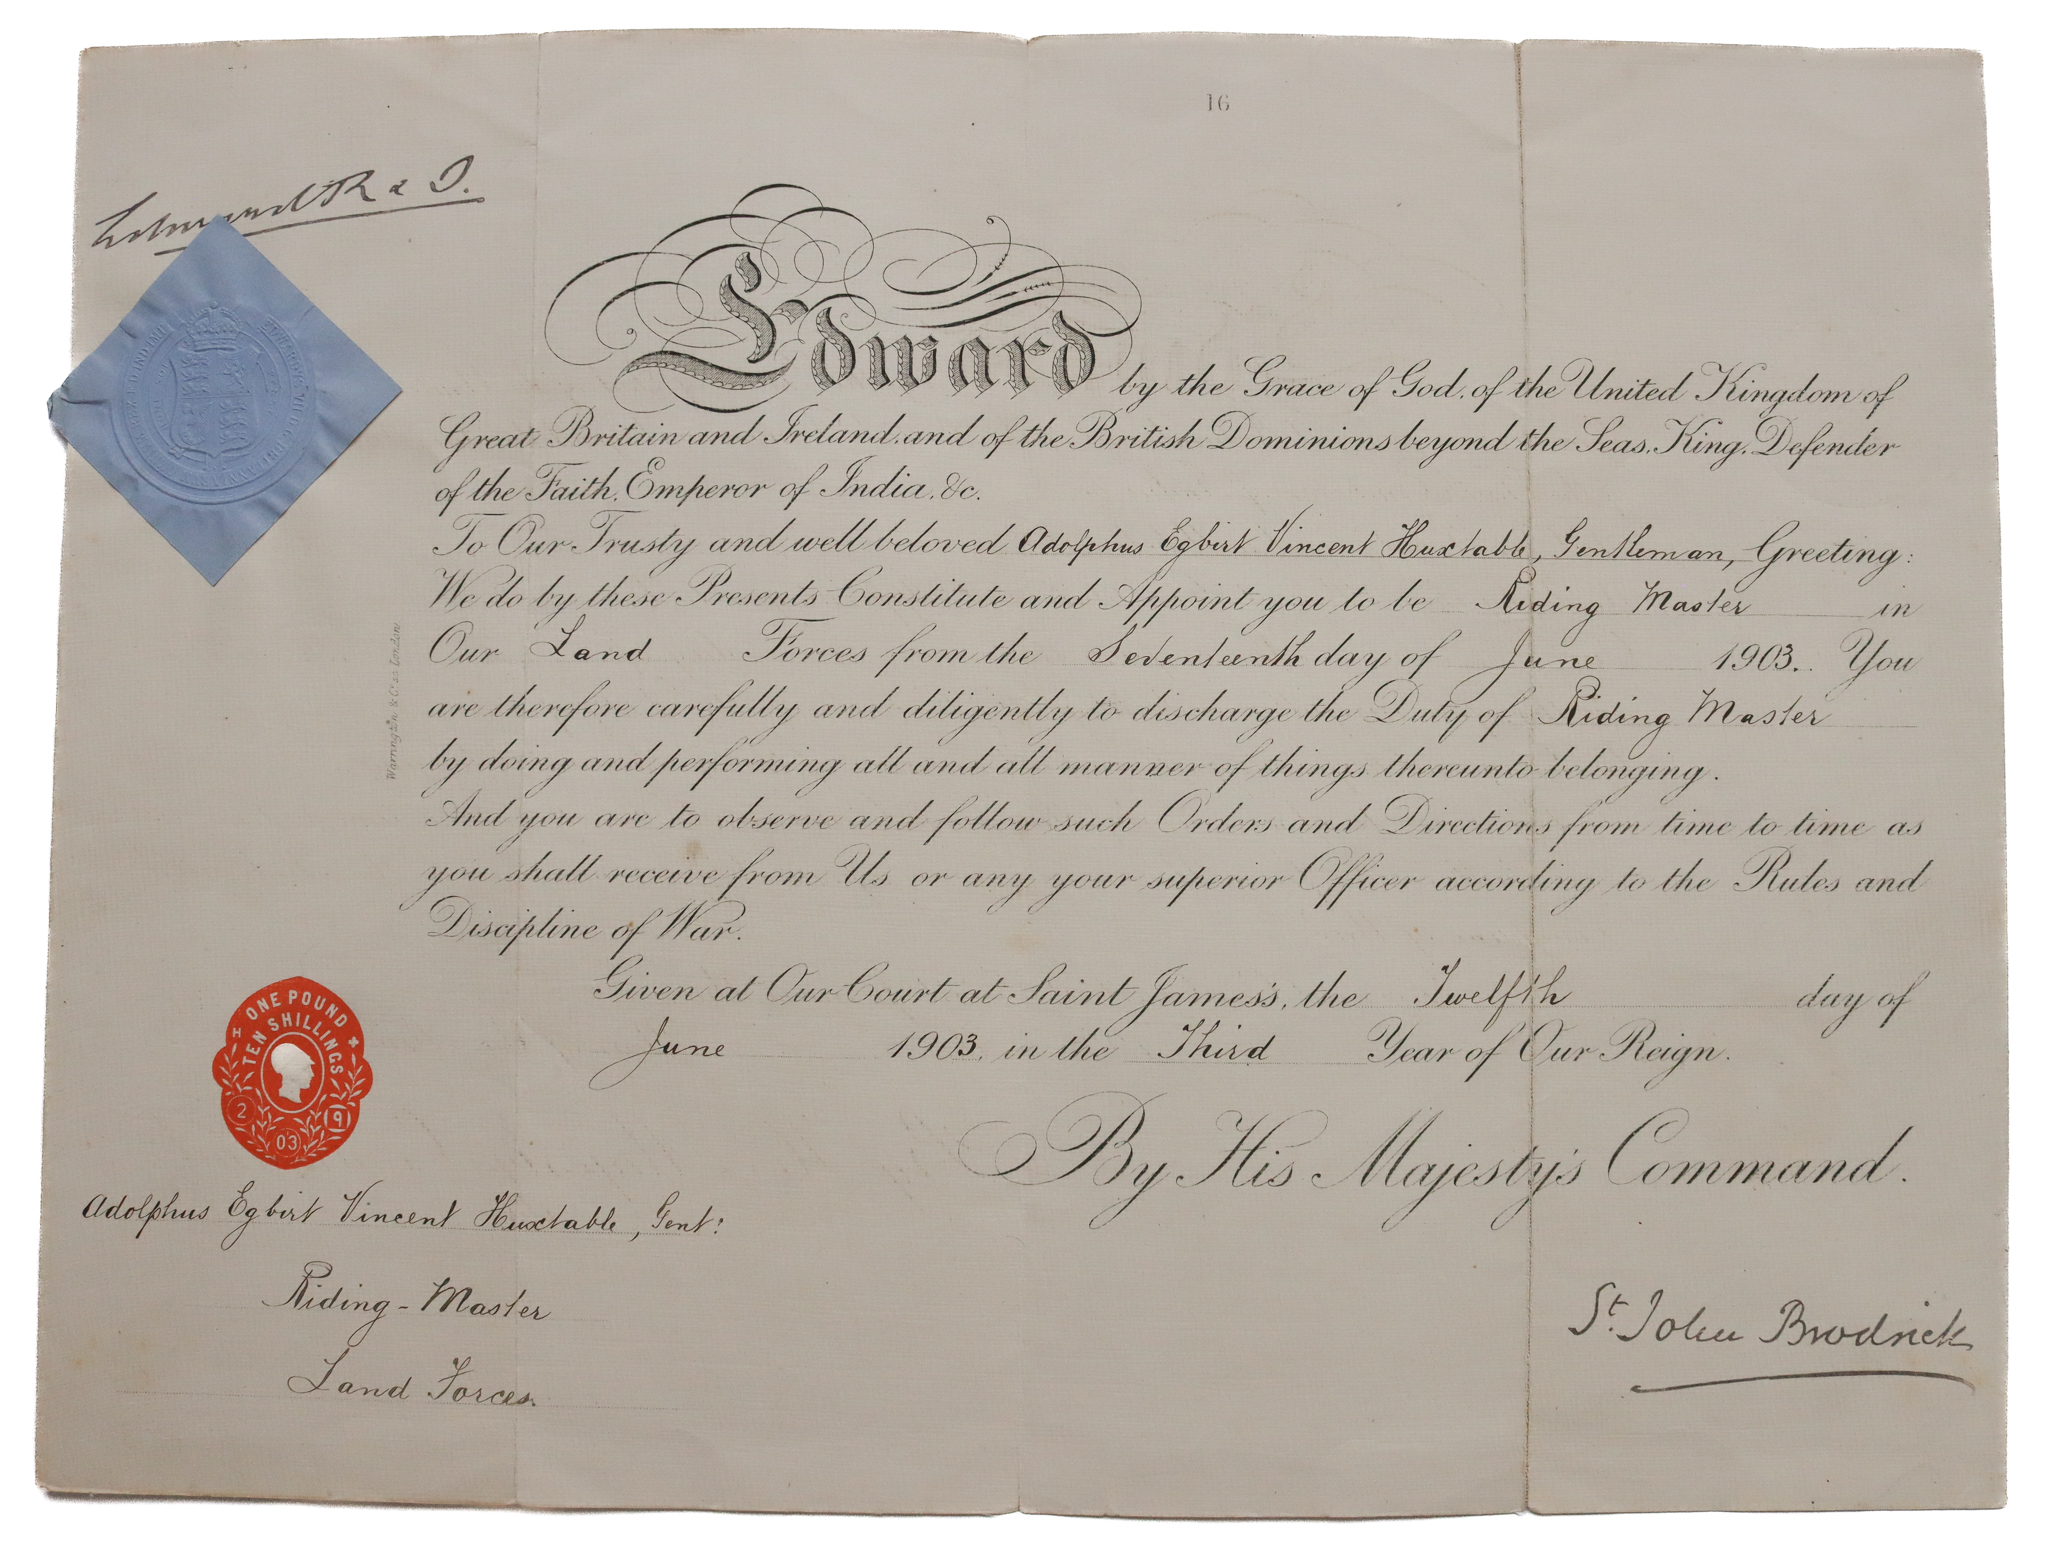 16
Edward R & I.
Edward by the Grace of God, of the United Kingdom of
Great Britain and Ireland, and of the British Dominions beyond the Seas, King, Defender
of the Faith, Emperor of India, &c.
To Our Trusty and well beloved Adolphus Egbert Vincent Huxtable, Gentleman, Greeting:
We do by these Presents Constitute and Appoint you to be Riding Master in
Our Land Forces from the Seventeenth day of June 1903. You
are therefore carefully and diligently to discharge the Duty of Riding Master
by doing and performing all and all manner of things thereunto belonging.
And you are to observe and follow such Orders and Directions from time to time as
you shall receive from Us or any your superior Officer according to the Rules and
Discipline of War.
Given at Our Court at Saint James's, the Twelfth day of
June 1903, in the Third Year of Our Reign.
By His Majesty's Command.
Warrington & Co. London
ONE POUND
TEN SHILLINGS
2 9
03
Adolphus Egbert Vincent Huxtable, Gent:
Riding-Master
Land Forces.
St. John Brodrick